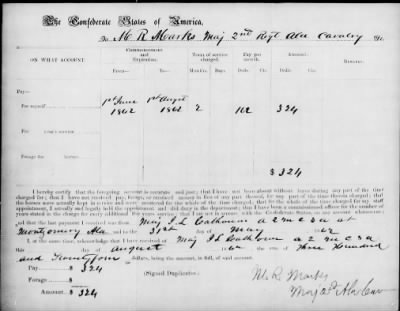 The Confederate States of America,
To M R Marks Maj 2nd Regt Ala Cavalry Dr.
ON WHAT ACCOUNT.
COMMENCEMENT and Expiration.
Term of service charged.
Pay per month.
Amount.
Remarks.
From— To— Months Days Dolls. Cts. Dolls. Cts.
Pay—
For myself 1st June 1862 1st Augst 1862 2 162 324
Forage for
$ 324
I hereby certify that the foregoing account is accurate and just; that I have not been absent without leave during any part of the time
charged for; that I have not received pay, forage, or received money in lieu of any part thereof, for any part of the time therein charged; that
the horses were actually kept in service and were mustered for the whole of the time charged; that for the whole of the time charged for my staff
appointment, I actually and legally held the appointment and did duty in the department; that I have been a commissioned officer for the number of
years stated in the charge for every additional five years service; that I am not in arrears with the Confederate States, on any account whatsoever;
and that the last payment I received was from Maj J L Calhoun a 2 m c s a at
Montgomery Ala and to the 31st day of May 1862
I, at the same time, acknowledge that I have received of Maj J L Calhoun a 2 m c s a
this day of August 1862 the sum of Three Hundred
and Twenty four dollars, being the amount, in full, of said account.
Pay— $ 324
Forage $
Amount $ 324
(Signed Duplicates)
M. R. Marks
Maj 2nd Ala Cav